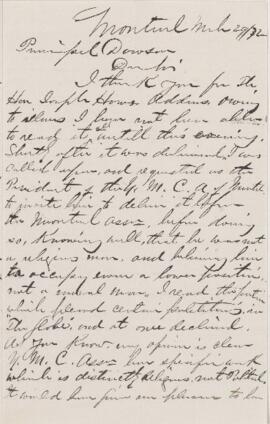 Montreal Mch 29/72
Principal Dawson
Dear Sir
I thank you for the
Hon Joseph Howe Address, owing
to illness I have not been able
to read it untill this evening.
Shortly after it was delivered I was
called upon, and requested as the
President of the Y. M. C. A. of Montreal
to invite him to deliver it before
the Montreal Assn, before doing
so, knowing well, that he was not
a religious man, and believing him
to occupy even a lower position,
not a moral man, I read this
which placed certain
the Globe, and at once declined.
As you know my opinion is clear
Y. M. C. Assn has specific work
which is distinctly religious, not Political,
it would have given me pleasure to have